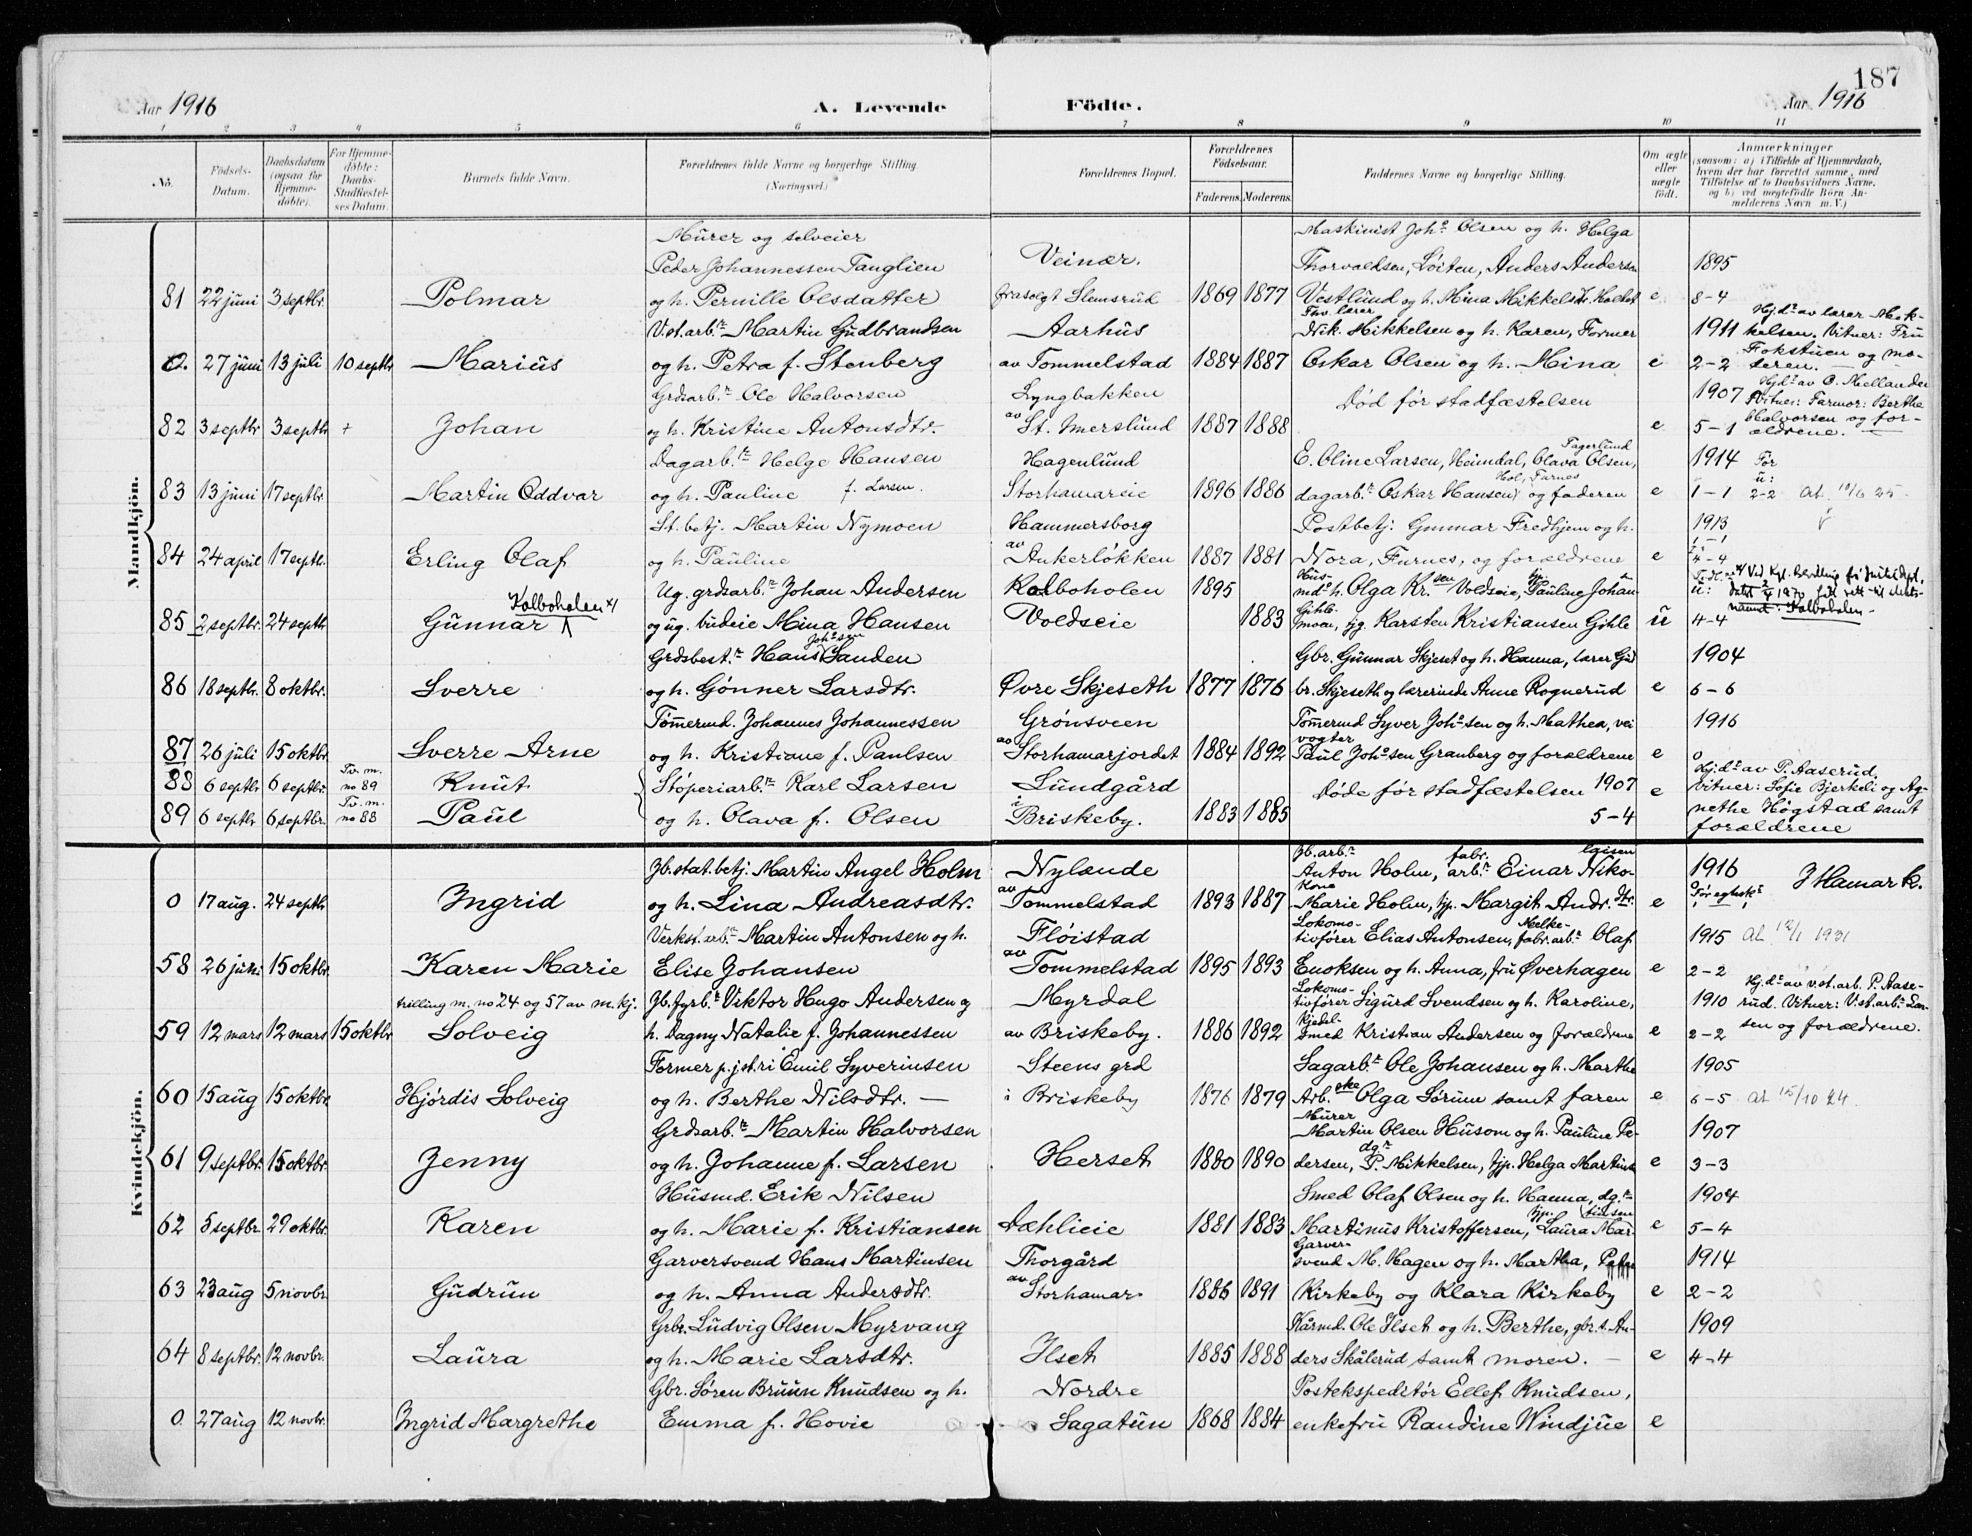 187
Aar 1916 A. Levende Födte. Aar 1916
1 2 3 4 5 6 7 8 9 10 11
No. Födsels-Datum. Daabsdatum (ogsaa for Hjemme-döbte). For Hjemme-döbte: Daabs-Stadfæstel-ses Datum. Barnets fulde Navn. Forældrenes fulde Navne og borgerlige Stilling. (Næringsvei.) Forældrenes Bopæl. Forældrenes Födselsaar. Faderens Moderens Faddernes Navne og borgerlige Stilling. Om ægte eller uægte født. Anmærkninger (saasom: a) i Tilfælde af Hjemmedaab, hvem der har forrettet samme, med Tilföielse af to Daabsvidners Navne, og b) ved uægtefödte Börn An-melderens Navn m.V.)
Mandkjön.
Murer og selveier Maskinist Johs Olsen og h. Helga
Peder Johannessen Tanglien Veinær. Thorvaldsen, Löiten, Anders Andersen 1895
81 22 juni 3 septbr. Polmar og h. Pernille Olsdatter frasolgt Slemsrud 1869 1877 Vestlund og h. Mina Mikkelsdtr. e 8-4
V.st.arb.r Martin Gudbrandsen Aarhus Fhv. lærer Nik. Mikkelsen og h. Karen, Former 1911 Hj.dt av lærer Mik-kelsen. Vitner: Fru
0. 27 juni 13 juli 10 septbr Marius og h. Petra f. Stenberg av Tommelstad 1884 1887 Oskar Olsen og h. Mina e 2-2 Fokstuen og mo-deren.
Grdsarb.r Ole Halvorsen Lyngbakken Död för stadfæstelsen 1907 Hj.dt av O. Mellander Vitner: Farmor: Berthe
82 3 septbr 3 septbr + Johan og h. Kristine Antonsdtr. av St. Imerslund 1887 1888 e 5-1 Halvorsen og for-ældrene.
Dagarb.r Helge Hansen Hagenlund E. Oline Larsen, Heimdal, Olava Olsen, Fagerlund 1914 För
83 13 juni 17 septbr. Martin Oddvar og h. Pauline f. Larsen. Storhamareie 1896 1886 dagarb.r Oskar Hansen, Hol, Furnes og faderen e 1-1 u: 2-2 At. 10/6 25
St.betj. Martin Nymoen Hammersborg Postbetj. Gunnar Fredhjem og h. 1913
84 24 april 17 septbr. Erling Olaf og h. Pauline av Ankerlökken 1887 1881 Nora, Furnes, og forældrene e 4-4
Ug. grdsarb.r Johan Andersen Kolboholen 1895 Hus-md. h. Olga Kr.sen Voldseie, pp. Pauline Johan-sen
85 2 septbr. 24 septbr Gunnar Kolboholen x) og ug. budeie Mina Hansen Voldseie 1883 Gihle-moen, jg. Karsten Kristiansen Gihle ü 4-4
Grdsbest.r Hans Johssen Sanden Gbr. Gunnar Skjeset og h. Hanna, lærer Gud- 1904
86 18 septbr. 8 oktbr. Sverre og h. Gönner Larsdtr. Övre Skjeseth 1877 1876 br. Skjeseth og lærerinde Anne Rognerud e 6-6
Tömermd. Johannes Johannessen Grönsveen Tömermd Syver Johssen og h. Mathea, vei- 1916
87 26 juli 15 oktbr. Sverre Arne og h. Kristiane f. Paulsen av Storhamarjordet 1884 1892 vogter Paul Johssen Granberg og forældrene e 0
88 6 septbr 6 septbr. Tv. m. no 89 Knut Stöperiarb.r Karl Larsen Lundgård Döde för stadfæstelsen 1907 e Hj.dt av P. Aaserud. Vitner: Sofie Bjerkeli og Ag-
89 6 septbr 6 septbr. Tv. m. no 88 Paul og h. Olava f. Olsen i Briskeby. 1883 1885 5-4 nethe Högstad samt forældrene
Kvindekjön.
Jb.stat.betj. Martin Angel Holm Nylænde Jb.arb.r Anton Holm, fabr. arb.r Einar Niko-laisen 1916 I Hamar k.
0 17 aug. 24 septbr Ingrid og h. Lina Andreasdtr. av Tommelstad 1893 1887 Kone Marie Holm, pp. Margit Andr.dtr. e
Verkst.arb.r Martin Antonsen og h. Flöistad Lokomo-tivförer Elias Antonsen, Melke-fabr.arb.r Olaf 1915 At. 12/1 1931
58 26 juni 15 oktbr. Karen Marie Elise Johansen av Tommelstad 1895 1893 Enoksen og h. Anna, fru Överhagen e 2-2
trilling m. no 24 og 57 av m.kj. Jb.fyrb.r Viktor Hugo Andersen og Myrdal Lokomo-tivförer Sigurd Svendsen og h. Karoline, 1910 Hj.dt av v.st.arb. P. Aase-rud. Vitner: V.st.arb.r Lar-
59 12 mars 12 mars 15 oktbr Solveig h. Dagny Natalie f. Johannessen av Briskeby. 1886 1892 Kjedel-smed Kristian Andersen og forældrene e 2-2 sen og forældrene.
Former p. jst.ri Emil Syverinsen Steens grd Sagarb.r Ole Johansen og h. Marthe 1905
60 15 aug 15 oktbr. Hjördis Solveig og h. Berthe Nilsdtr. — i Briskeby 1876 1879 Arb.ske Olga Sörum samt faren e 6-5 At 15/10 24.
Grdsarb.r Martin Halvorsen Murer Martin Olsen Husom og h. Pauline Pe- 1907
61 9 septbr. 15 oktbr. Jenny og h. Johanne f. Larsen Herset 1880 1890 dersen, dg.r P. Mikkelsen, pp. Helga Martins- e 3-3
Husmd. Erik Nilsen Smed Olaf Olsen og h. Hanna, dg.r 1904
62 5 septbr. 29 oktbr. Karen og h. Marie f. Kristiansen Dæhlieie 1881 1883 Martinus Kristoffersen, pp. Laura Mar-tinsen e 5-4
Garversvend Hans Martinsen Thorgård Garver-svend M. Hagen og h. Martha, 1914
63 23 aug 5 novbr. Gudrun og h. Anna Andersdtr. av Storhamar 1886 1891 Kirkeby og Klara Kirkeby e 2-2
Gbr. Ludvig Olsen Myrvang Kårmd. Ole Ilset og h. Berthe, gbr.s. An- 1909
64 8 septbr. 12 novbr. Laura og h. Marie Larsdtr. Ilset 1885 1888 ders Skålerud samt moren. — e 4-4
Gbr. Sören Bruun Knudsen og h. Nordre Postekspeditör Ellef Knudsen,
0. 27 aug 12 novbr. Ingrid Margrethe Emma f. Hovie Sagatun 1868 1884 enkefru Randine Windjue e